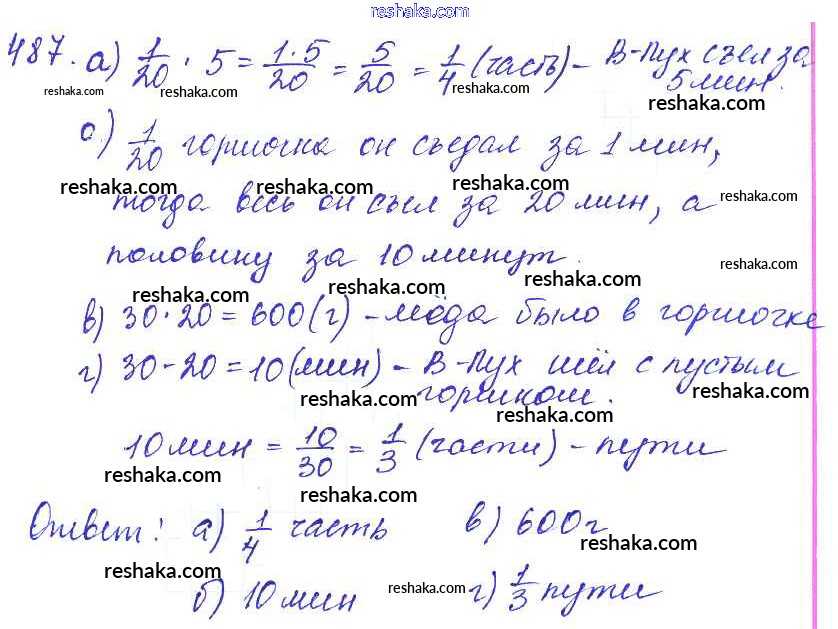 reshaka.com
487. а) 1/20 · 5 = 1·5/20 = 5/20 = 1/4 (часть) - В-Пух съел за
5 мин.
reshaka.com reshaka.com reshaka.com reshaka.com reshaka.com
б) 1/20 горшочка он съедал за 1 мин,
reshaka.com reshaka.com reshaka.com reshaka.com
тогда весь он съел за 20 мин, а
половину за 10 минут.
reshaka.com reshaka.com reshaka.com reshaka.com
в) 30 · 20 = 600 (г) - мёда было в горшочке
reshaka.com reshaka.com reshaka.com
г) 30 - 20 = 10 (мин) - В-Пух шёл с пустым
горшком.
reshaka.com reshaka.com reshaka.com
10 мин = 10/30 = 1/3 (части) - пути
reshaka.com reshaka.com reshaka.com
Ответ: а) 1/4 часть в) 600 г
reshaka.com reshaka.com reshaka.com
б) 10 мин г) 1/3 пути
reshaka.com reshaka.com